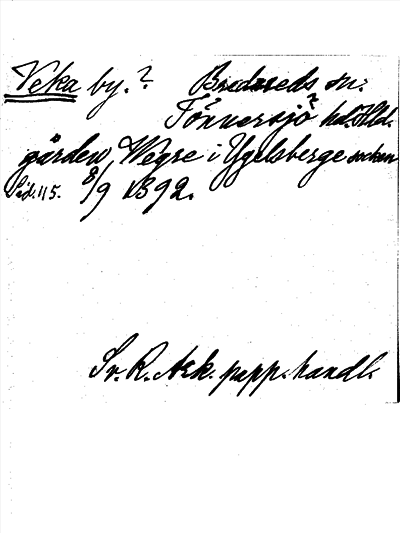 Veka by.? Bredareds sn.
Tönnersjö? hd. Hld.
gården Wegre i Ygelsberge socken
Sid. 115. 8/9 1392.
Sv. R. Ark. papp. handl.